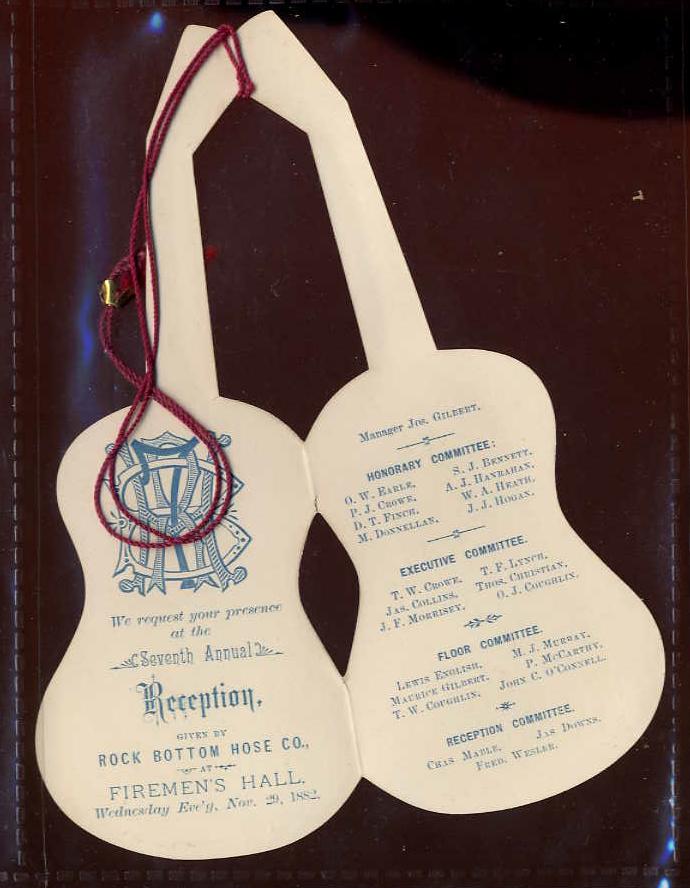 We request your presence
at the
Seventh Annual
Reception,
GIVEN BY
ROCK BOTTOM HOSE CO.,
AT
FIREMEN'S HALL.
Wednesday Eve'g, Nov. 29, 1882.
Manager Jos. Gilbert.
HONORARY COMMITTEE:
O. W. Earle, S. J. Bennett,
P. J. Crowe, A. J. Hanrahan,
D. T. Finch, W. A. Heath,
M. Donnellan, J. J. Hogan.
EXECUTIVE COMMITTEE.
T. W. Crowe, T. F. Lynch,
Jas. Collins, Thos. Christian,
J. F. Morrisey, O. J. Coughlin.
FLOOR COMMITTEE.
Lewis English, M. J. Murray,
Maurice Gilbert, P. McCarthy,
T. W. Coughlin, John C. O'Connell.
RECEPTION COMMITTEE.
Chas Mable, Jas Downs,
Fred. Wesler.